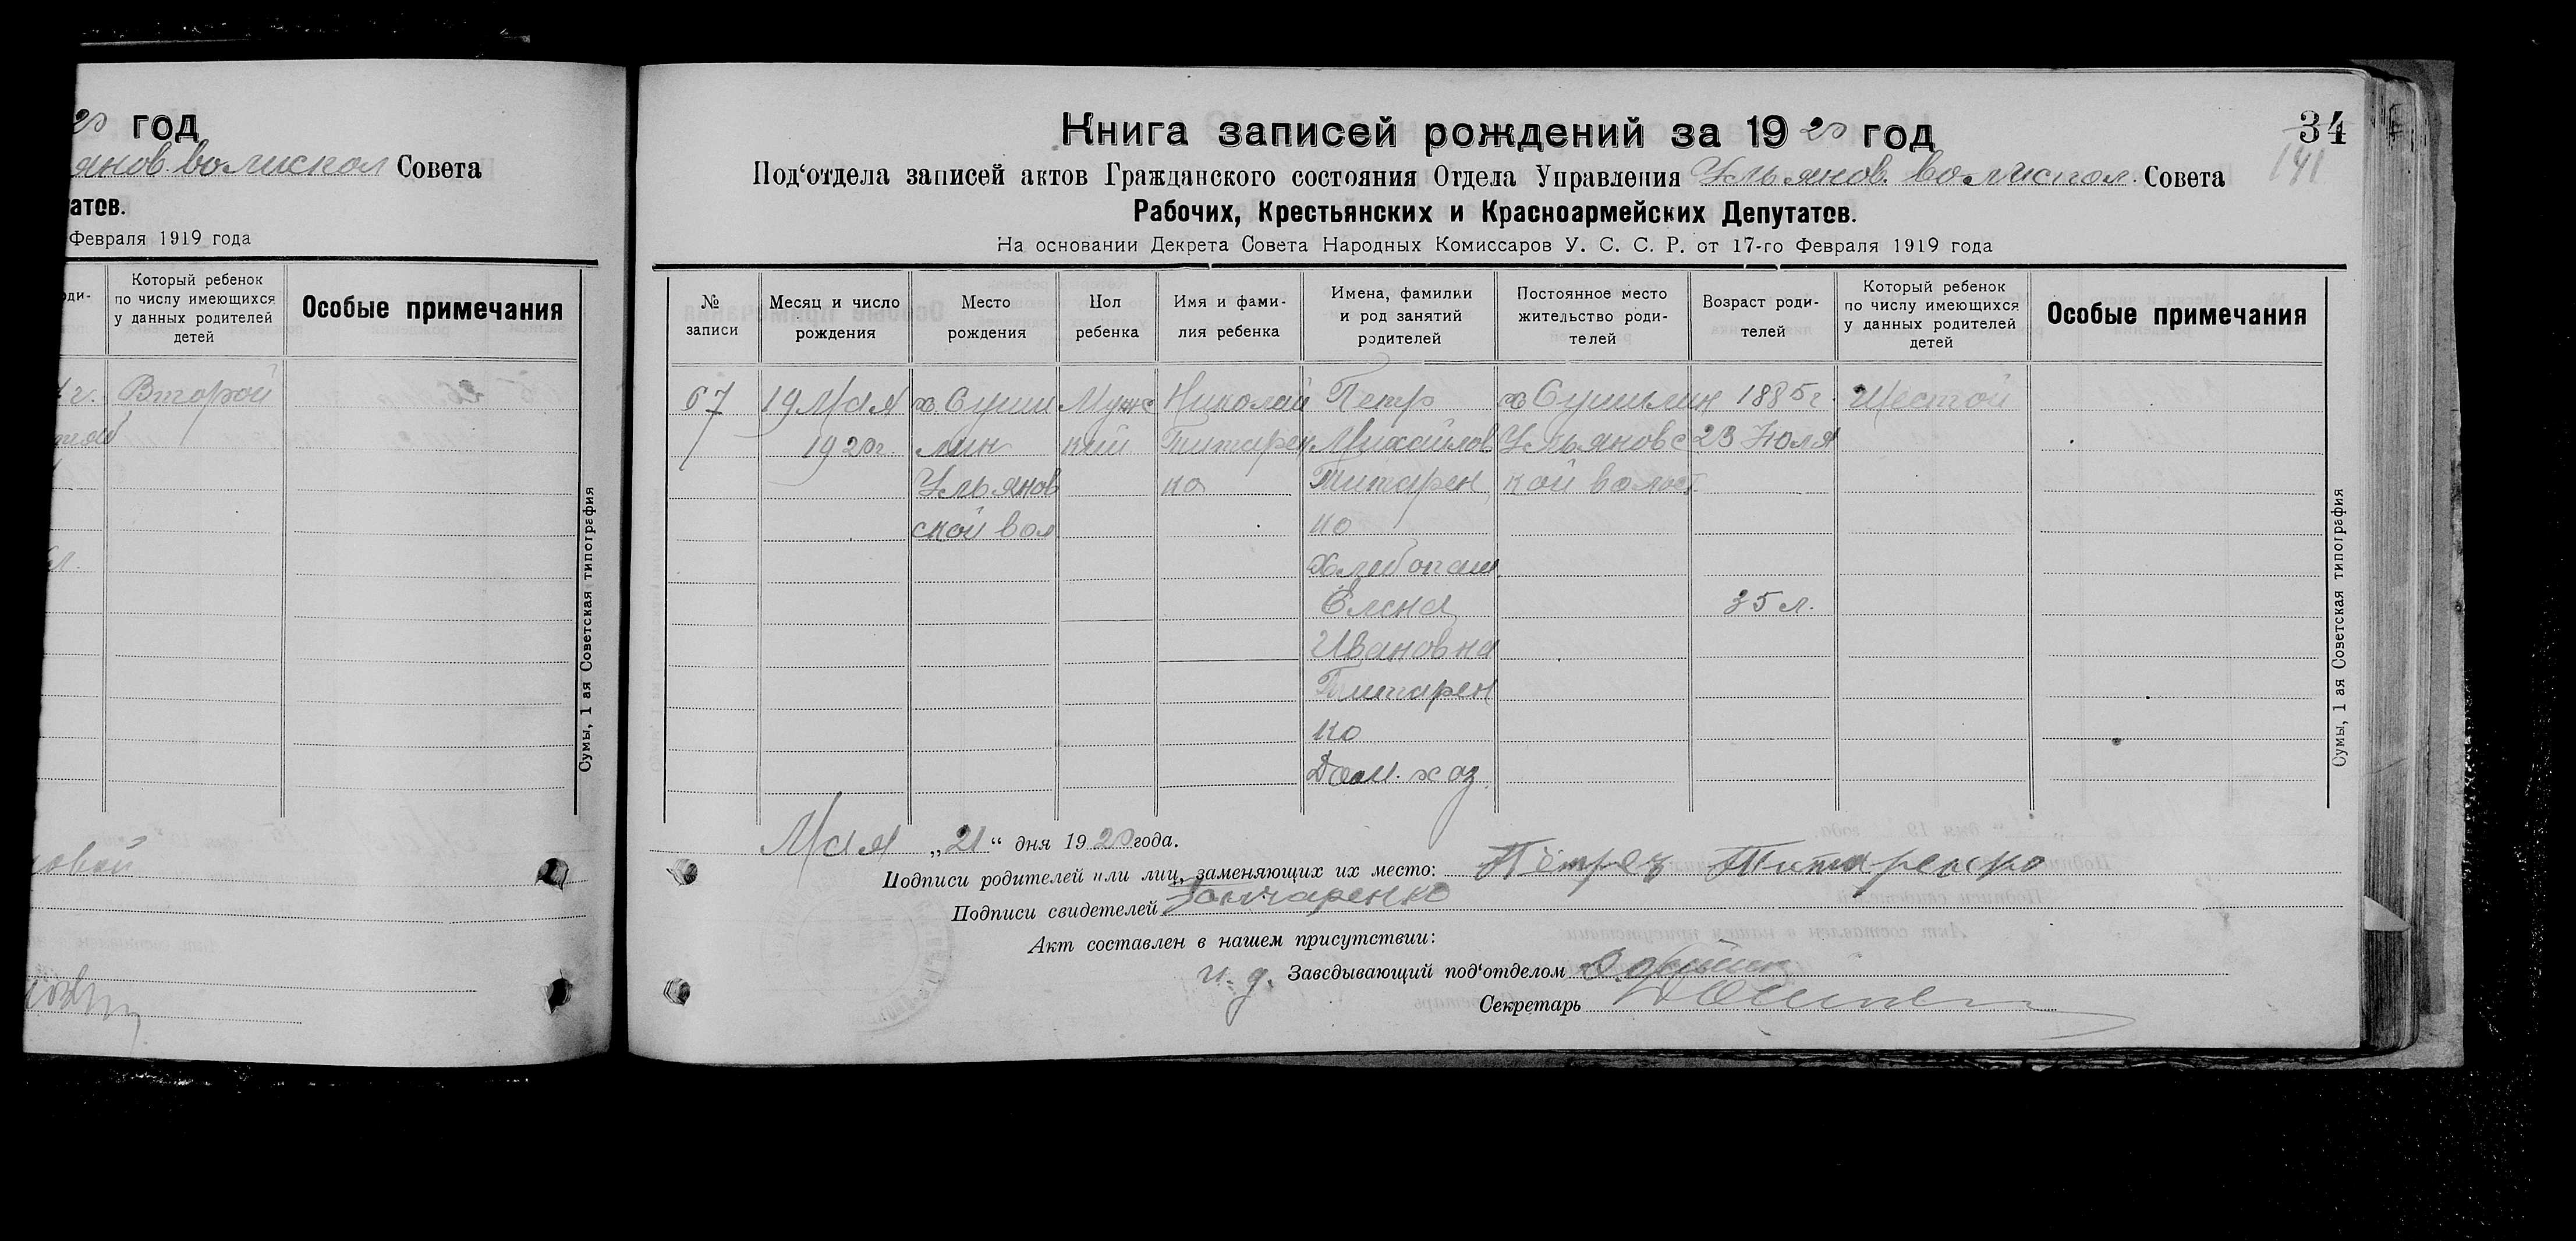 20 год
янов. волиспол Совета
атов.
Февраля 1919 года
оди-
Который ребенок
по числу имеющихся
у данных родителей
детей
Особые примечания
г. Второй
Сумы, 1 ая Советская типография
овой
Книга записей рождений за 1920 год
34
141
Под‘отдела записей актов Гражданского состояния Отдела Управления Ульянов. волиспол. Совета
Рабочих, Крестьянских и Красноармейских Депутатов.
На основании Декрета Совета Народных Комиссаров У. С. С. Р. от 17-го Февраля 1919 года
№
записи
Месяц и число
рождения
Место
рождения
Пол
ребенка
Имя и фами-
лия ребенка
Имена, фамилии
и род занятий
родителей
Постоянное место
жительство роди-
телей
Возраст роди-
телей
Который ребенок
по числу имеющихся
у данных родителей
детей
Особые примечания
67
19 Мая
1920 г.
х. Суши
лин
Ульянов
ской вол
Мужс
кий
Николай
Титарен
ко
Петр
Михайлов.
Титарен
ко
Хлебопаш
Елена
Ивановна
Титарен
ко
Дом. хоз.
х Сушилин
Ульяновс
кой волост.
1885 г.
23 Июля
35 л.
Шестой
Сумы, 1 ая Советская типография
Мая „21“ дня 1920 года.
Подписи родителей или лиц, заменяющих их место: Петръ Титаренко
Подписи свидетелей Гончаренко
Акт составлен в нашем присутствии:
и. д. Заведывающий под‘отделом
Секретарь